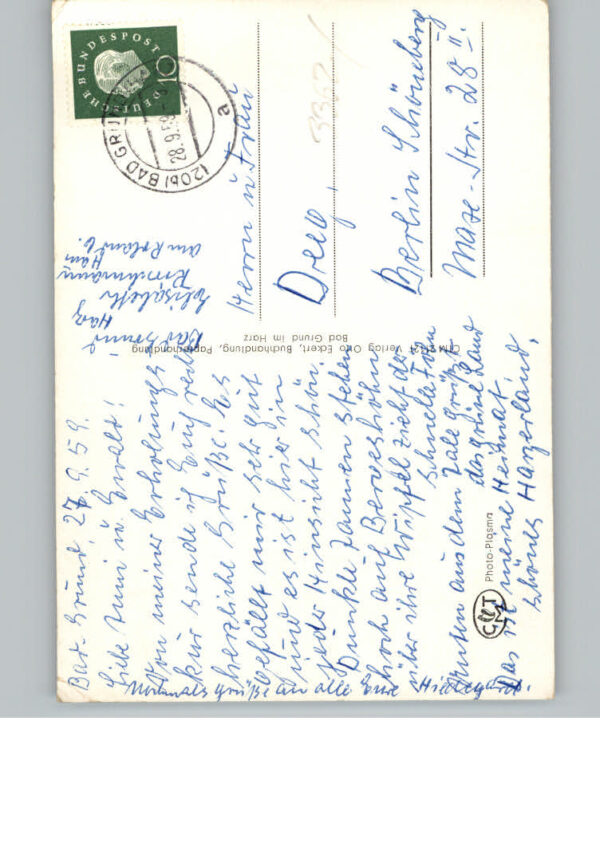 Bad-Grund, 27.9.59.
Liebe Mimi u. Ewald!
Von meiner Erholungs
kur sende ich Euch recht
herzliche Grüße. Es
gefällt mir sehr gut
und es ist hier in
jeder Hinsicht schön.
Dunkle Tannen stehen
hoch auf Bergeshöhn
über ihre Wipfel zieht der
schnelle
drunten aus dem Tale grüßt
das grüne Land
Das ist meine Heimat
schönes Harzerland.
Nochmals Grüße an alle Eure Hildegard.
DEUTSCHE BUNDESPOST
10
(20b) BAD GRUND
28.9.59
a
Bad Grund
Harz
Elisabeth
Ham
am Roland 6.
3362/
Herrn u Frau
Deeg,
Berlin Schöneberg
Str. 28 II.
Verlag Otto Eckert, Buchhandlung, Papierhandlung,
Bad Grund im Harz
Photo-Plasma